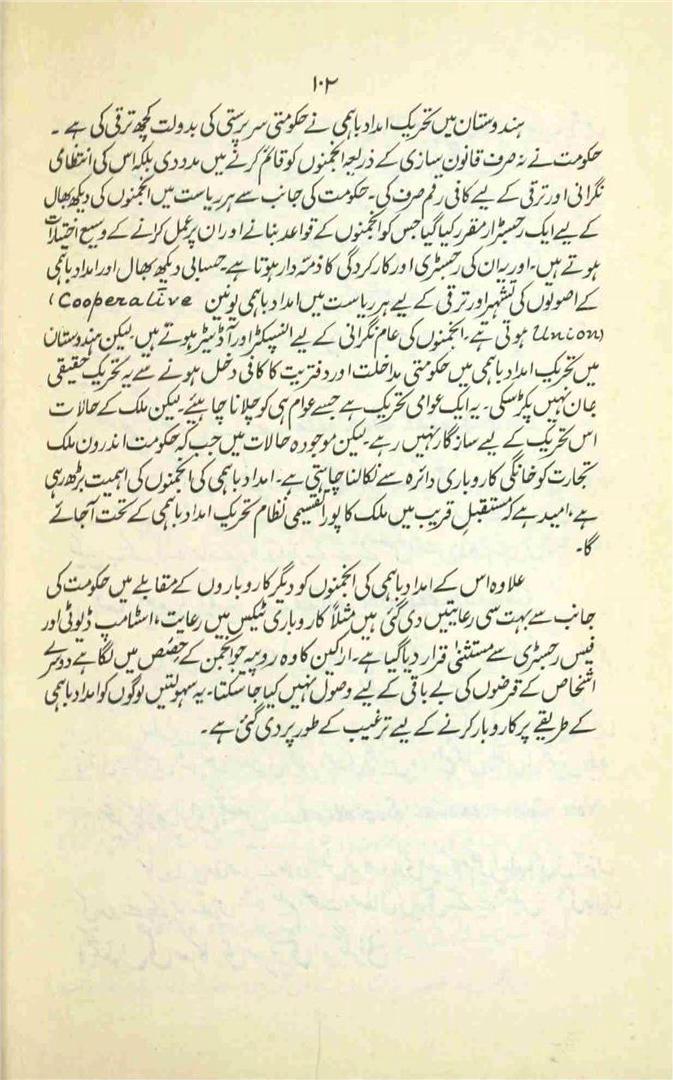 ۱۰۲
ہندوستان میں تحریک امداد باہمی نے حکومتی سرپرستی کی بدولت کچھ ترقی کی ہے ۔
حکومت نے نہ صرف قانون سازی کے ذریعہ انجمنوں کو قائم کرنے میں مدد دی بلکہ اس کی انتظامی
نگرانی اور ترقی کے لیے کافی رقم صرف کی۔ حکومت کی جانب سے ہر ریاست میں انجمنوں کی دیکھ بھال
کے لیے ایک رجسٹرار مقرر کیا گیا جس کو انجمنوں کے قواعد بنانے اور ان پر عمل کرانے کے وسیع اختیارات
ہوتے ہیں۔ اور یہ ان کی رجسٹری اور کارکردگی کا ذمہ دار ہوتا ہے۔ حسابی دیکھ بھال اور امداد باہمی
کے اصولوں کی تشہیر اور ترقی کے لیے ہر ریاست میں امداد باہمی یونین (Cooperative
Union) ہوتی ہے۔ انجمنوں کی عام نگرانی کے لیے انسپکٹر اور آڈیٹر ہوتے ہیں۔ لیکن ہندوستان
میں تحریک امداد باہمی میں حکومتی مداخلت اور دفتریت کا کافی دخل ہونے سے یہ تحریک حقیقی
جان نہیں پکڑ سکی۔ یہ ایک عوامی تحریک ہے جسے عوام ہی کو چلانا چاہیئے۔ لیکن ملک کے حالات
اس تحریک کے لیے سازگار نہیں رہے۔ لیکن موجودہ حالات میں جب کہ حکومت اندرون ملک
تجارت کو خانگی کاروباری دائرہ سے نکالنا چاہتی ہے۔ امداد باہمی کی انجمنوں کی اہمیت بڑھ رہی
ہے، امید ہے کہ مستقبل قریب میں ملک کا پورا تقسیمی نظام تحریک امداد باہمی کے تحت آجائے
گا۔
علاوہ اس کے امداد باہمی کی انجمنوں کو دیگر کاروباروں کے مقابلے میں حکومت کی
جانب سے بہت سی رعایتیں دی گئی ہیں مثلاً کاروباری ٹیکس میں رعایت، اسٹامپ ڈیوٹی اور
فیس رجسٹری سے مستثنیٰ قرار دیا گیا ہے۔ اراکین کا وہ روپیہ جو انجمن کے حِصَص میں لگا ہے دوسرے
اشخاص کے قرضوں کی بے باقی کے لیے وصول نہیں کیا جا سکتا۔ یہ سہولتیں لوگوں کو امداد باہمی
کے طریقے پر کاروبار کرنے کے لیے ترغیب کے طور پر دی گئی ہے۔